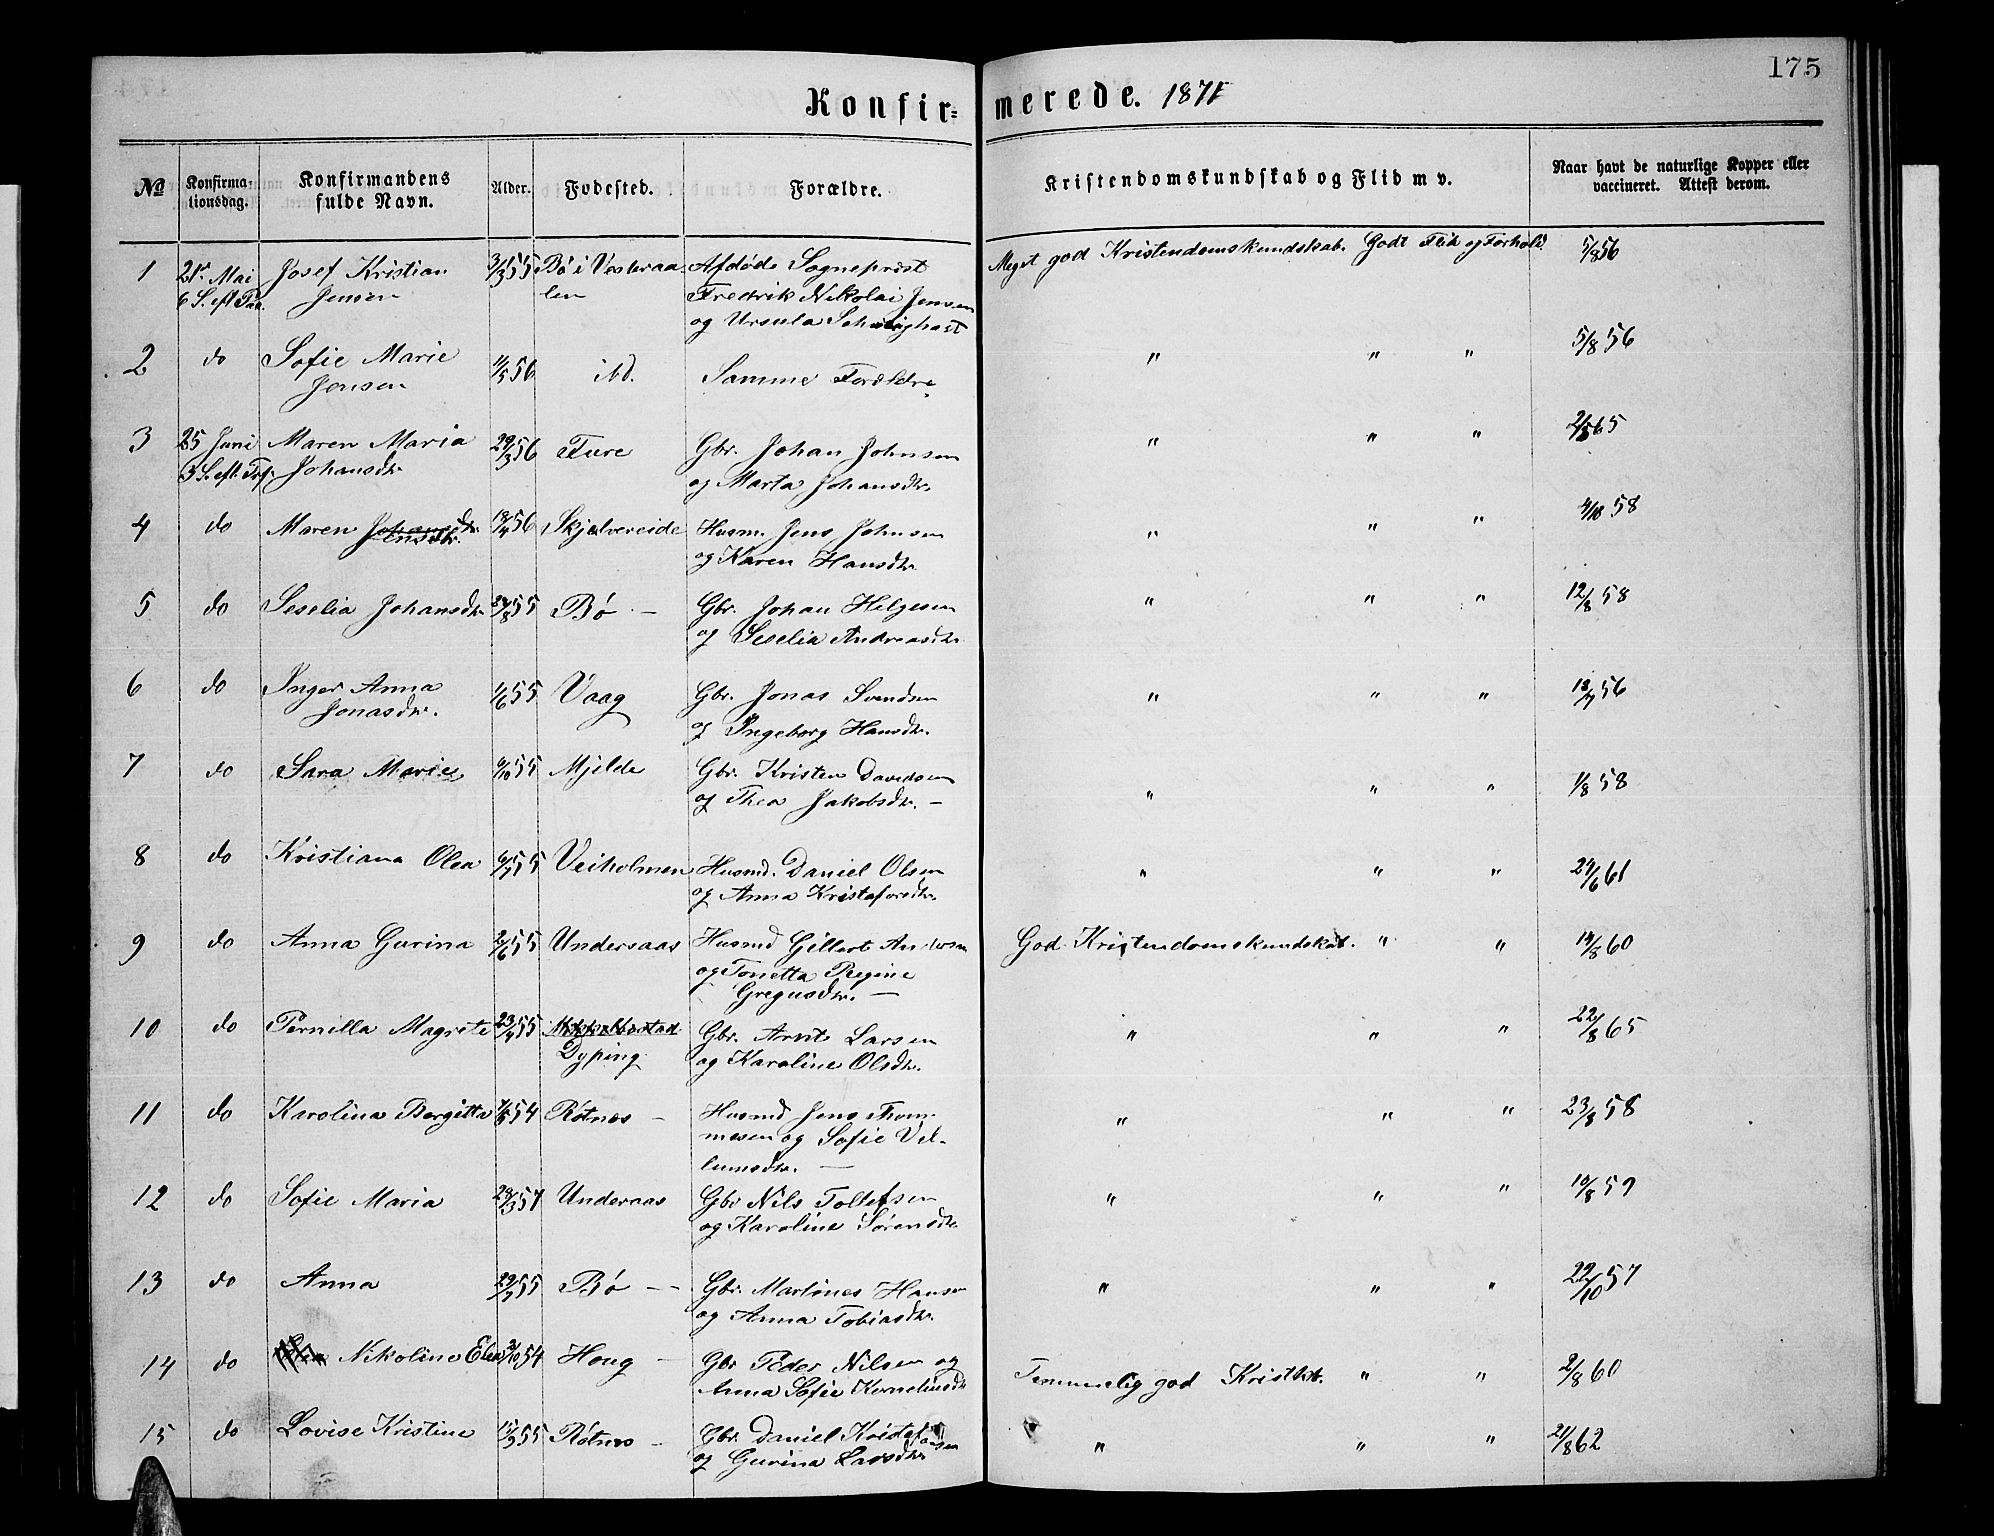 175
Konfir= merede. 1871
No
Konfirma-
tionsdag.
Konfirmandens
fulde Navn.
Alder.
Fødested.
Forældre.
Kristendomskundskab og Flid m v.
Naar havt de naturlige Kopper eller
vaccineret. Attest derom.
1 21de Mai Josef Kristian 3/3 55 Bø i Vesteraa- Afdøde Sogneprest Meget god Kristendomskundskab. Godt Flid og Forhold. 5/8 56
6 S. eft. Paa. Jensen len Fredrik Nikolai Jensen
og Ursula
2 do Sofie Marie 11/5 56 ibd. Samme Forældre " " " 5/8 56
Jensen
3 25 Juni Maren Maria 29/3 56 Fure Gbr. Johan Johnsen " " " 65
3 S. eft. Trf. Johansdtr. og Marta Johansdtr.
4 do Maren Johansdtr. 18/4 56 Skjelvereide Husm. Jens Johnsen " " " 4/10 58
Jensdtr. og Karen Hansdtr.
5 do Seselia Johansdtr. 55 Bø — Gbr. Johan Helgesen " " " 12/8 58
og Seselia Andreasdtr.
6 do Inger Anna 1/6 55 Vaag Gbr. Jonas Svendsen " " " 18/7 56
Jonasdtr. og Ingeborg Hansdtr.
7 do Sara Marie 6/10 55 Mjelde Gbr. Kristen Davidsen " " " 1/8 58
og Thea Jakobsdtr. —
8 do Kristiana Olea 6/7 55 Veiholmen Husmd. Daniel Olsen " " " 24/6 61
og Anna Kristofersdtr.
9 do Anna Gurina 2/6 55 Undersaas Husmd Gillert Andersen God Kristendomskundskab. " " 14/8 60
og Tonetta Regine
Gregusdtr. —
10 do Pernilla Magrete 23/4 55 Mikkelbostad Gbr. Arnt Larsen " " " 22/8 65
Dyping og Karoline Olsdtr.
11 do Karolina Bergitta 54 Røtnes — Husmd Jens Thom- " " " 23/8 58
mesen og Sofie Vil-
lumsdtr. —
12 do Sofie Maria 28/3 57 Underaas Gbr Nils Tollefsen " " " 10/8 59
og Karoline Sørensdtr.
13 do Anna 29/7 55 Bø — Gbr. Martines Hansen " " " 22/10 57
og Anna Tobiasdtr.
14 do Nikoline Elea 2/10 54 Houg — Gbr Peder Nilsen og Temmelig god Kristkb. " " 2/8 60
Anna Sofie Korneliusdtr
15 do Lovise Kristine 15/3 55 Røtnes — Gbr. Daniel Kristofersen " " " 21/8 62
og Gurina Larsdtr.